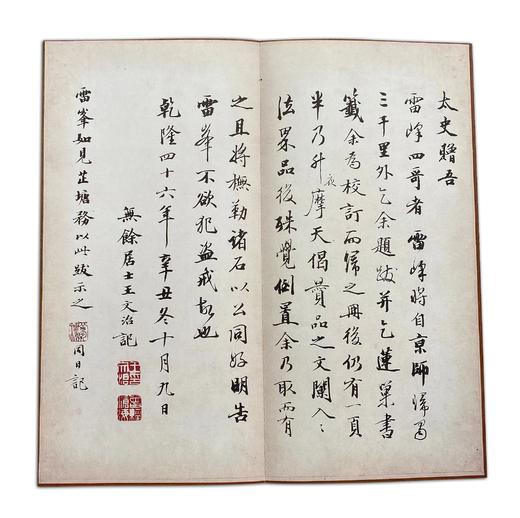 太史贈吾
雷峰四哥者雷峰將自京師歸蜀
三千里外乞余題跋并乞蓮巢書
籤余為校訂而歸之冊後仍有一頁
半乃升夜摩天偈讚品之文闌入
法界品後殊覺倒置余乃取而有
之且將橅勒諸石以公同好明告
雷峯不欲犯盜戒故也
乾隆四十六年辛丑冬十月九日
無餘居士王文治記
雷峯如見芷塘務以此跋示之
同日記